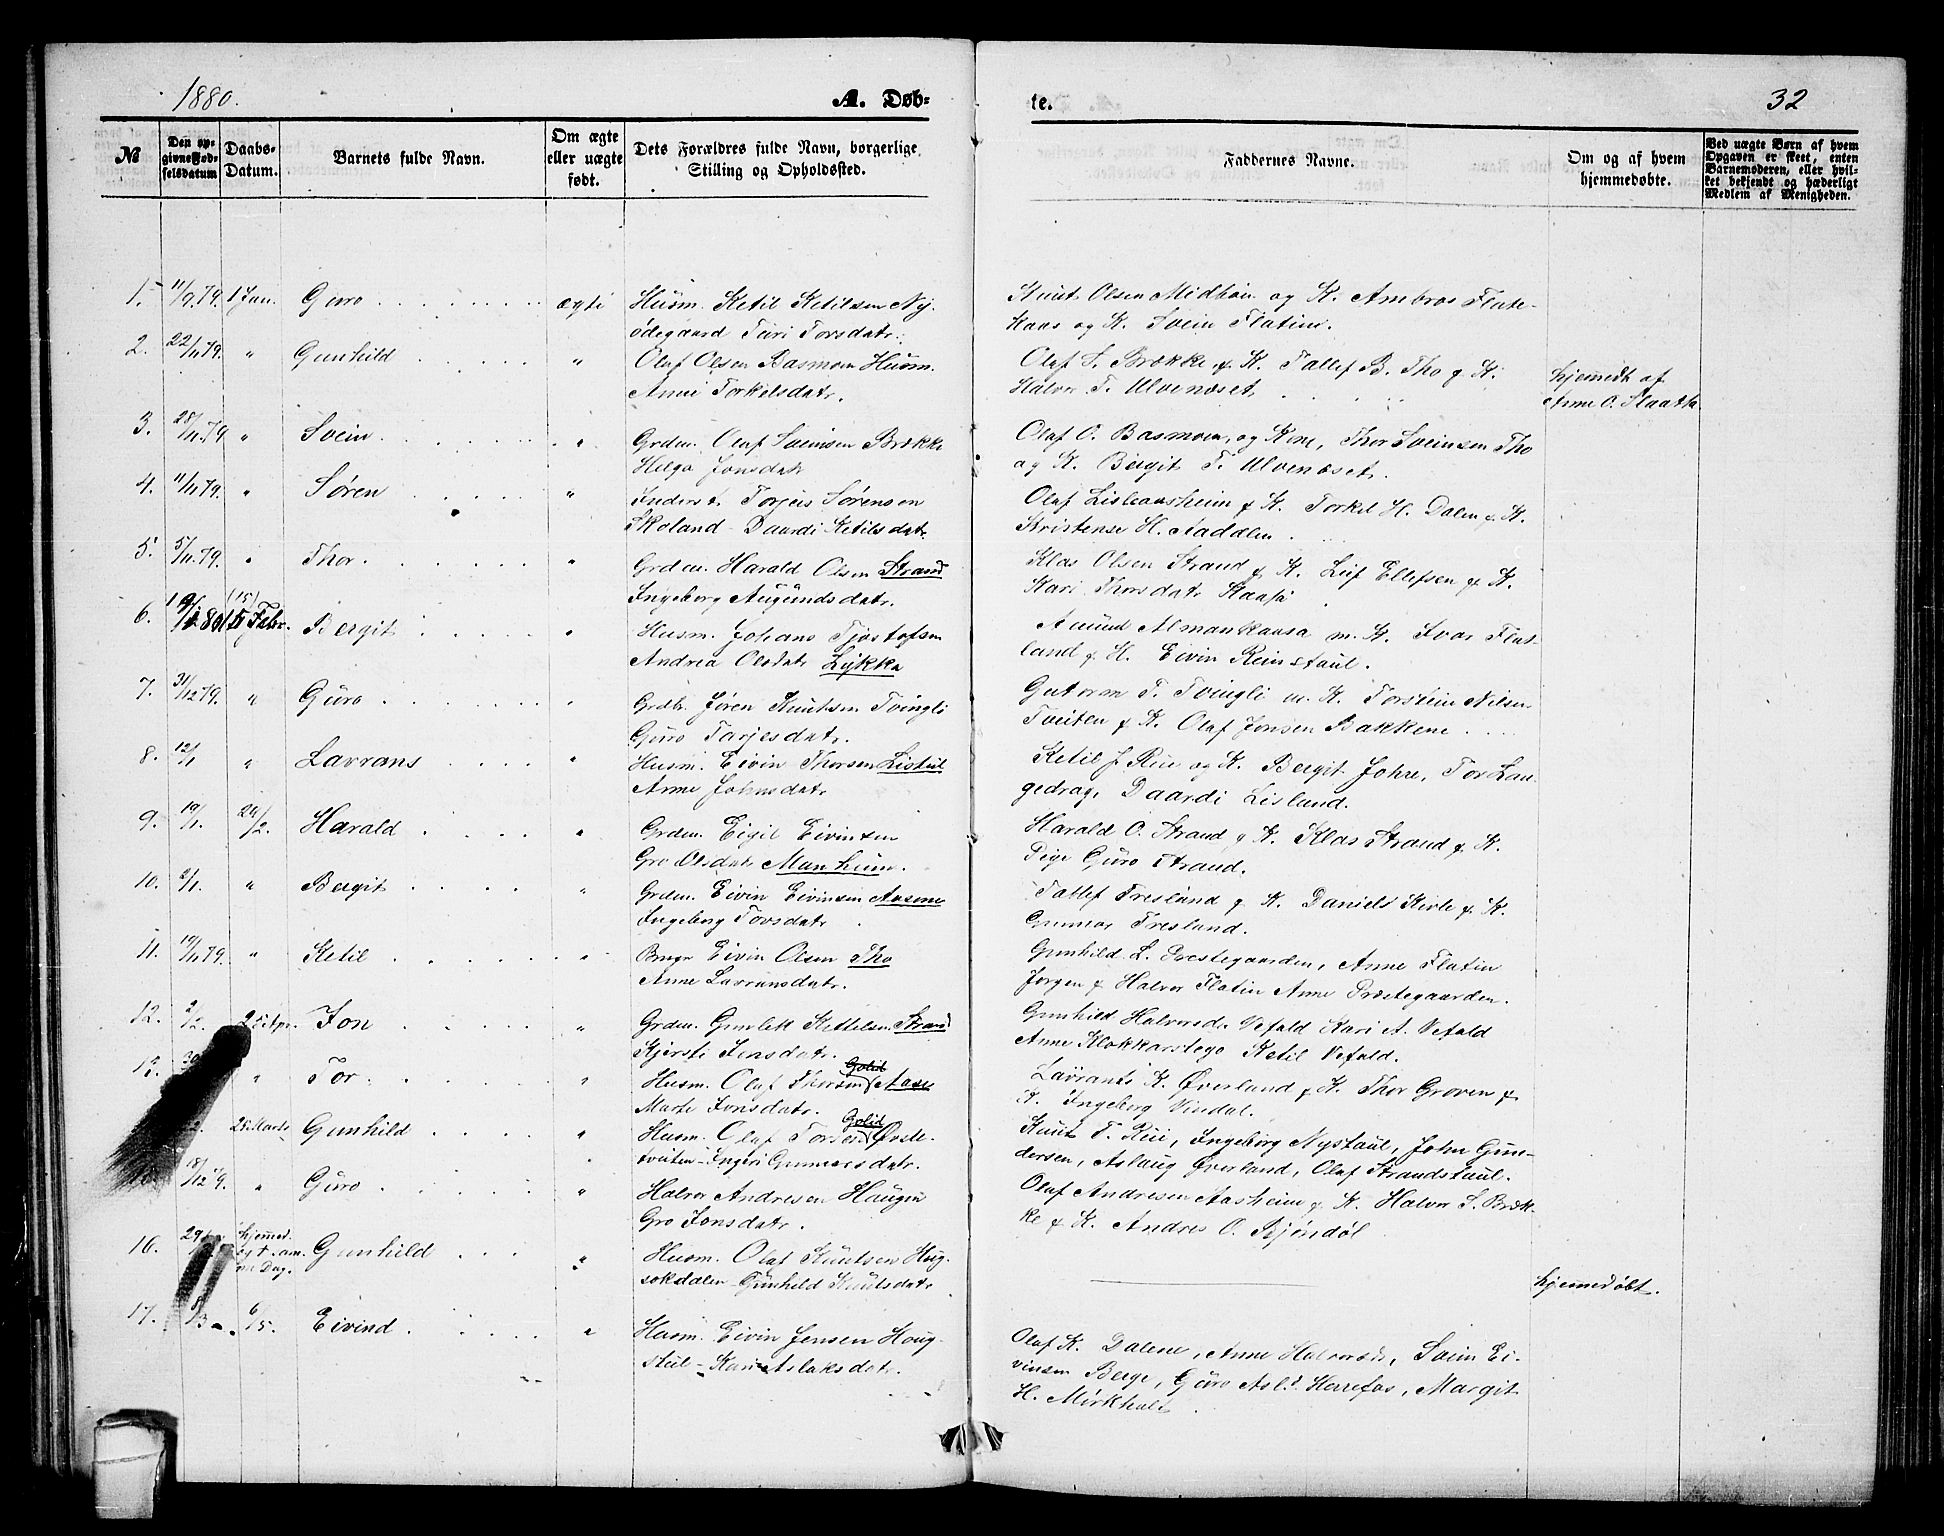 1880.
A. Døb-
te.
32
№
Den op-
givne Fød-
selsdatum
Daabs-
Datum.
Barnets fulde Navn.
Om ægte
eller uægte
født.
Dets Forældres fulde Navn, borgerlige
Stilling og Opholdssted.
Faddernes Navne.
Om og af hvem
hjemmedøbte.
Ved uægte Børn af hvem
Opgaven er skeet, enten
Barnemoderen, eller hvil-
ket bekjendt og hæderligt
Medlem af Menigheden.
1. 11/9.79. 1 Jan. Guro ægte Husm. Ketil Ketilsen Ny-
ødegaard Turi Torsdatr.
Knut Olsen Midbøin og K. Ambros Flate-
kaas og K. Svein Flatin.
2. 22/11.79. " Gunhild " Olaf Olsen Basmoen Husm.
Anne Torkilsdatr.
Olaf S. Brække & K. Tallef B. Tho & K.
Halvor T. Ulvenæset
hjemmedt af
Anne O. Slaatta
3. 28/11.79. " Svein " Grdm. Olaf Sveinsen Brække
Helga Jonsdatr
Olaf O. Basmoen, og Kone, Thor Sveinsen Tho
og K. Bergit T. Ulvenæset.
4. 11/11.79. " Søren " Inderst. Torjus Sørensen
Skoland - Daardi Ketilsdatr.
Olaf Lisleaasheim & K. Torkel H. Dalen & K.
Kristense H. Aaddlen
5. 5/11.79. " Thor " Grdm. Harald Olsen Strand
Ingeborg Augundsdatr.
Klas Olsen Strand & K. Leif Ellefsen & K.
Kari Thorsdatr Kaasa
6. 80 (15) 15 Febr. Bergit " Husm. Johans Tjostofsen
Andrea Olsdatr Lykka
Amund Almankaasa m. K. Ivar Flat-
land & H. Eivin Reinstaul.
7. 31/12.79. " Guro " Grdbr. Jøren Knutsen Tvingli
Guro Tarjesdatr.
Gutorm T. Tvingli m. K. Torstein Nilsen
Tveiten & K. Olaf Jonsen Bakkene
8. 12/1 " Lavrans " Husm. Eivin Thorsen Listul
Anne Johnsdatr
Ketil J. Rue og K. Bergit Johre, Tor Lan-
gedrag, Daardi Lisland.
9. 19/1. 29/2. Harald " Grdm. Eigil Eivinsen
Gro Olsdatr Manheim.
Harald O. Strand & K. Klas Strand & K.
Pige Guro Strand.
10. 2/1. " Bergit " Grdm. Eivin Eivinsen Aasene
Ingeborg Torsdatr
Tallef Tresland & K. Daniels Kivle & K.
Gunnar Tresland.
11. 19/11.79. " Ketil " Brugr Eivin Olsen Tho
Anne Lavransdatr.
Gunhild L. Prestegaarden, Anne Flatin
Jørgen & Halvor Flatin Anne Prestegaarden.
12. 2/2. 25 Apr. Jon " Grdm. Gunlek Kettilsen Strand
Kjersti Jonsdatr.
Gunhild Halvorsd. Vefald Kari A. Vefald
Anne Klokkarstego Ketil Vefald.
13. " Tor " Husm. Olaf Thorsen Golid Aase
Marte Jonsdatr.
Lavrants K. Øverland & K. Thor Groven &
K. Ingeborg Vindal.
28 Marts Gunhild " Husm. Olaf Torsen Golid Øvle-
tveiten - Ingeri Gunnarsdatr.
Knut T. Rui, Ingeborg Nystaul, John Gun-
dersen, Aslaug Øverland, Olaf Strandstaul.
18/12 79. " Guro " Halvor Andresen Haugen
Gro Jonsdatr.
Olaf Andresen Aasheim & K. Halvor S. Bræk-
ke & K. Andres O. Bjøndøl
16. hjemmed
døbt sam-
me Dag. Gunhild " Husm. Olaf Knutsen Houg-
sokdalen - Gunhild Knutsdatr
hjemmedøbt.
17. 8/3 6/5. Eivind " Husm. Eivin Jensen Houg-
stul - Kari Aslaksdatr.
Olaf K. Dalene, Anne Halvorsd., Svein Ei-
vinsen Berge, Guro Asl.d. Harefos, Margit
H. Mirkhult